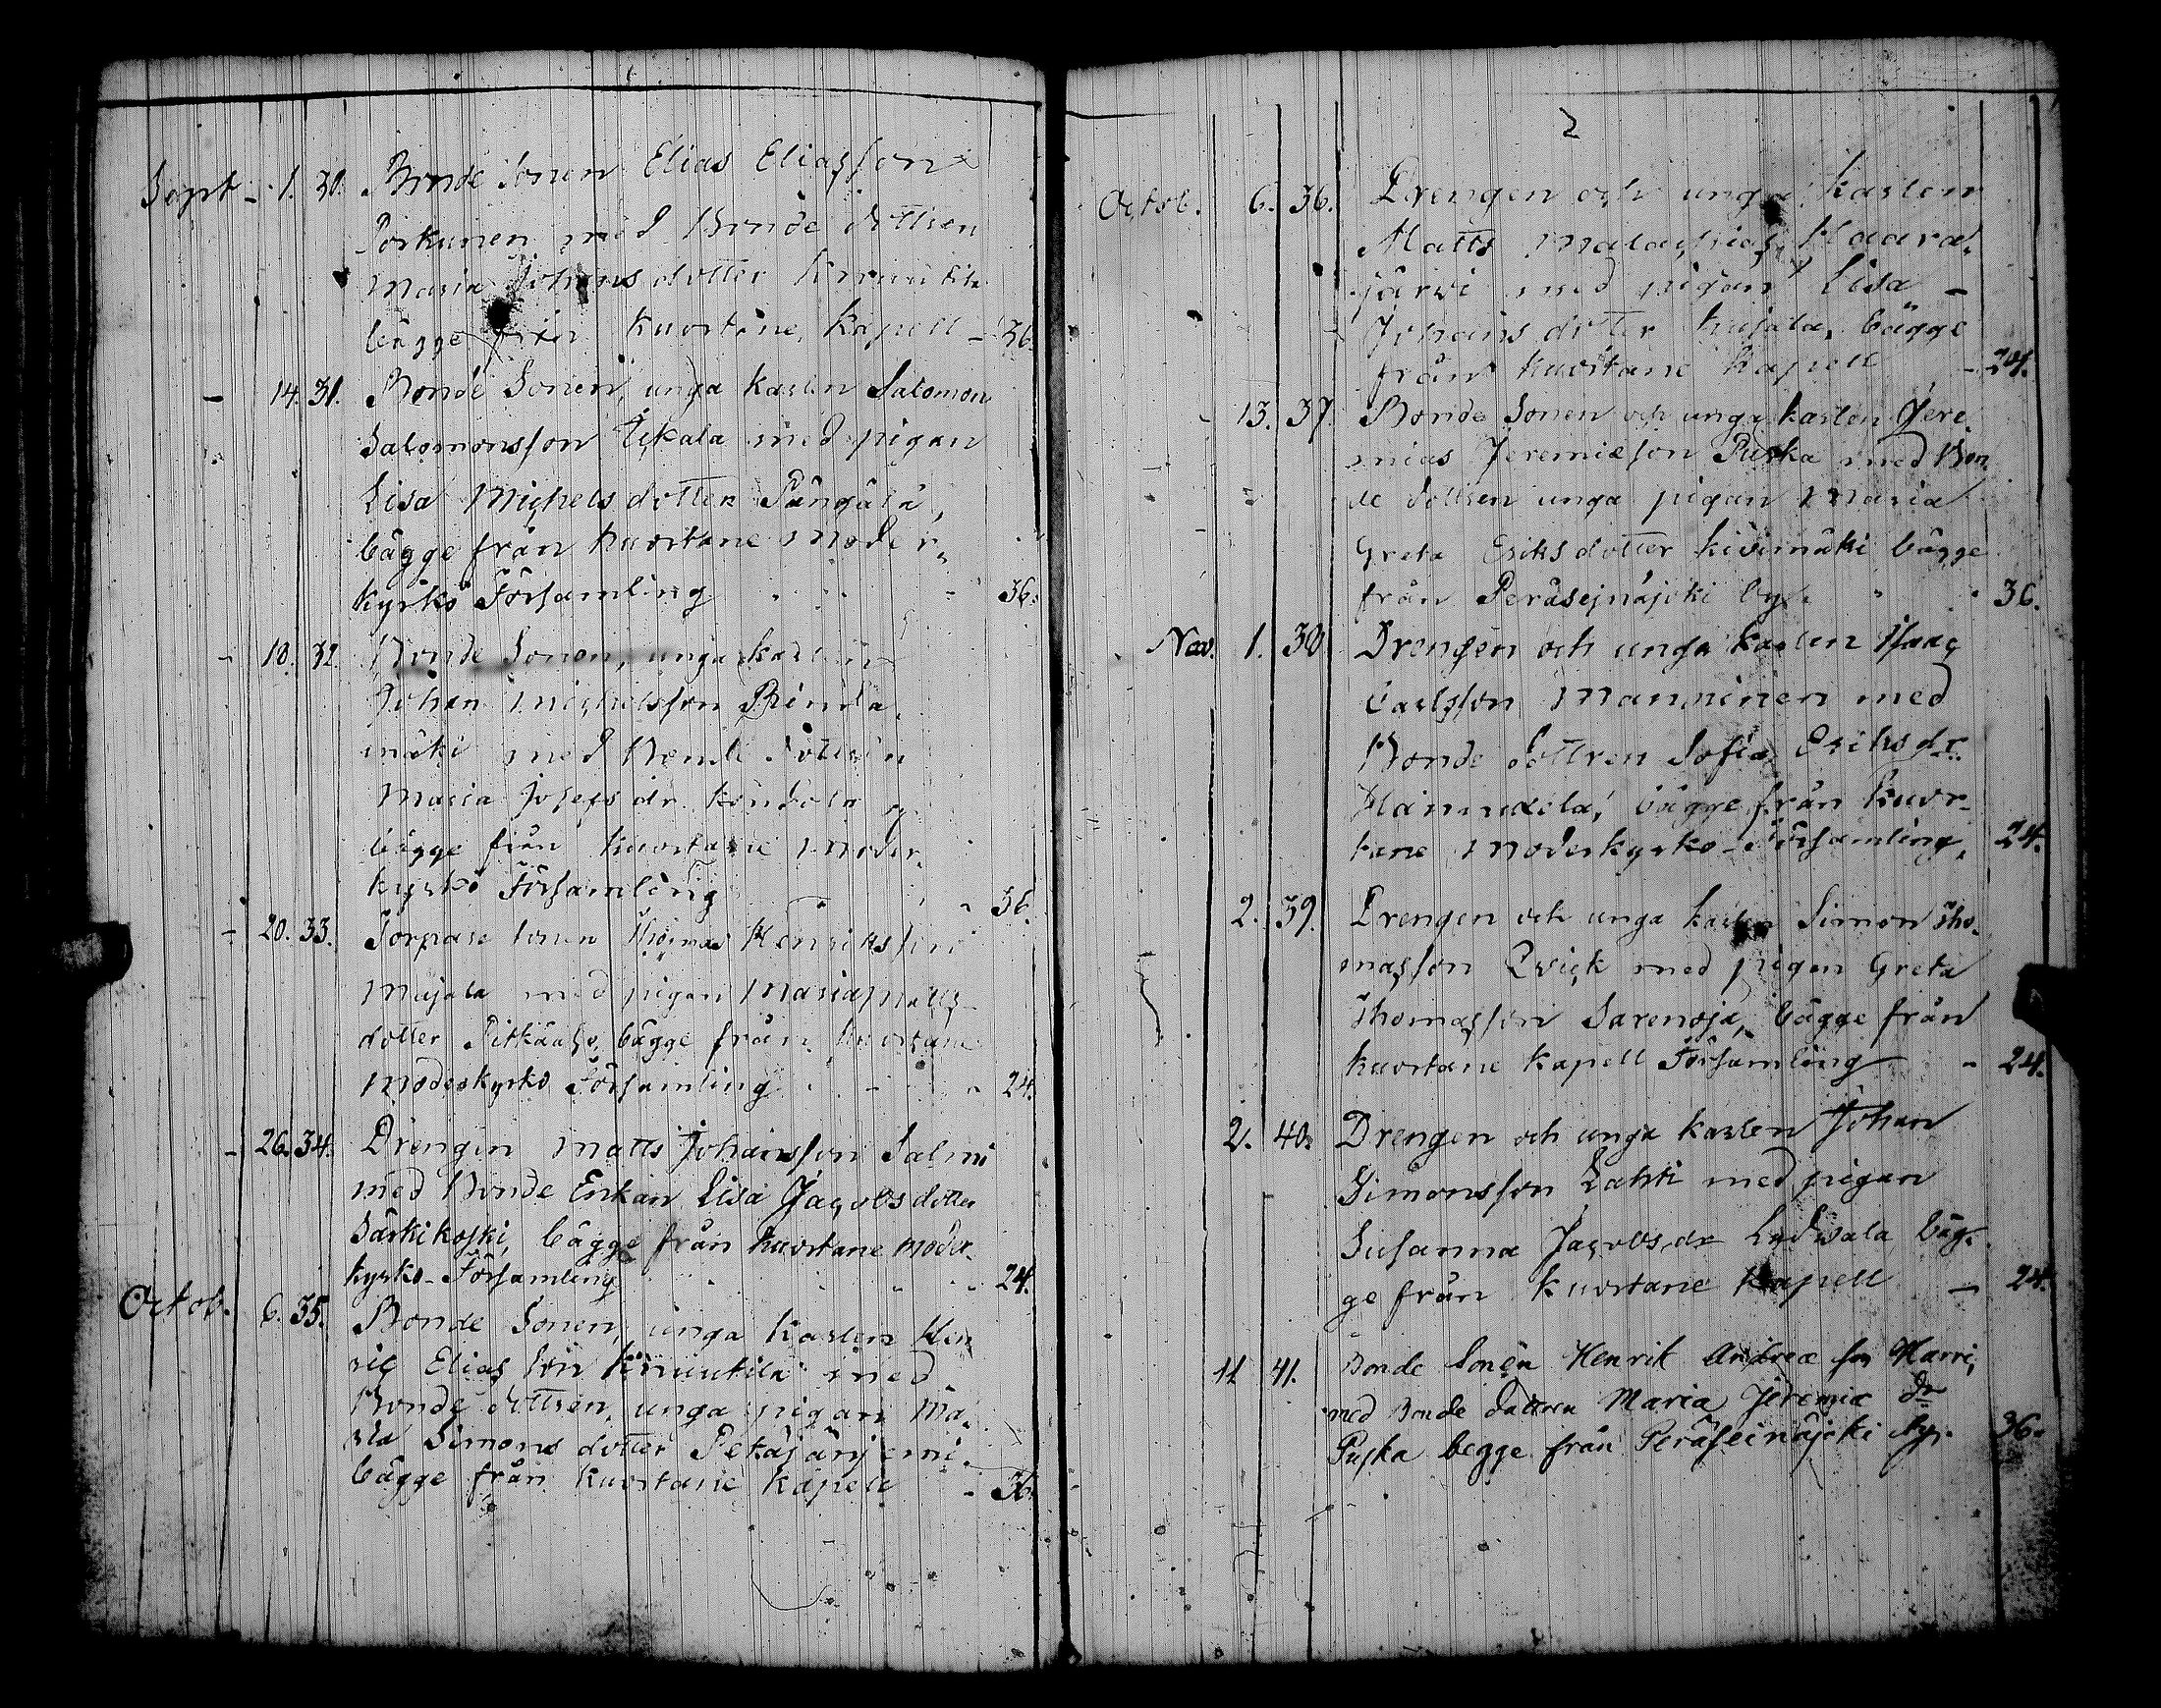 Sept - 1. 30. Bonde Sonen Elias Eliasson
Porkunen med Bonde dottren
Maria Johans dotter Knuutila
bägge från Kuortane Kapell - 36.
- 14. 31. Bonde Sonen, unga karlen Salomon
Salomonsson Ukala med pigan
Lisa Michels dotter Pängälä,
bägge från Kuortane Moder„
kyrko Församling - 36.
- 18. 32. Bonde Sonen, unga karlen
Johan Michelsson Rinda„
mäki med Bonde Dottren
Maria Josefs dr Kondola
bägge från Kuortane Moder„
kyrko Församling - 36.
- 20. 33. Torpare Sonen Thomas Henriksson
Mujala med pigan Maria Matts
dotter Pitkäaho, bägge från Kuortane
Moderkyrko Församling - 24.
- 26. 34. Drengen Matts Johansson Salmi
med Bonde Enkan Lisa Jacobs dotter
Särkikoski, bägge från Kuortane Moder„
kyrko-Församling 24.
Octob. 6. 35. Bonde Sonen, unga Karlen Hen„
ric Eliasson Knuutila med
Bonde dottren, unga pigan Ma„
ria Simons dotter Pekasänjemi
bägge från Kuortane Kapell - 36.
2
Octob. 6. 36. Drengen och unga karlen
Matts Malachias Haara„
järwi med pigan Lisa -
Johans dotter Kujala, bägge
från Kuortane Kapell - 24.
- 13. 37. Bonde Sonen och unga karlen Jere„
mias Jeremiæson Puska med Bon„
de dottren unga pigan Maria
Greta Eriks dotter Kivimäki bägge
från Peräsejnäjoki by. 36.
Nov. 1. 38. Drengen och unga karlen Isaac
Carlsson Manninen med
Bonde dottren Sofia Eriks dr
Hannuxela, bägge från Kuor„
tane Moderkyrko-Församling, 24.
2. 39. Drengen och unga karlen Simon Tho„
masson Qvick med pigan Greta
Thomasson Sarenoja, bägge från
Kuortane Kapell Församling - 24.
2. 40. Drengen och unga karlen Johan
Simonsson Lahti med pigan
Susanna Jacobs dr Ledwala bäg„
ge från Kuortane Kapell - 24.
11 41. Bonde Sonen Henrik Andreæ son Harri,
med Bonde dottren Maria Jeremiæ dr
Puska begge från Peräseinäjoki by. 36.